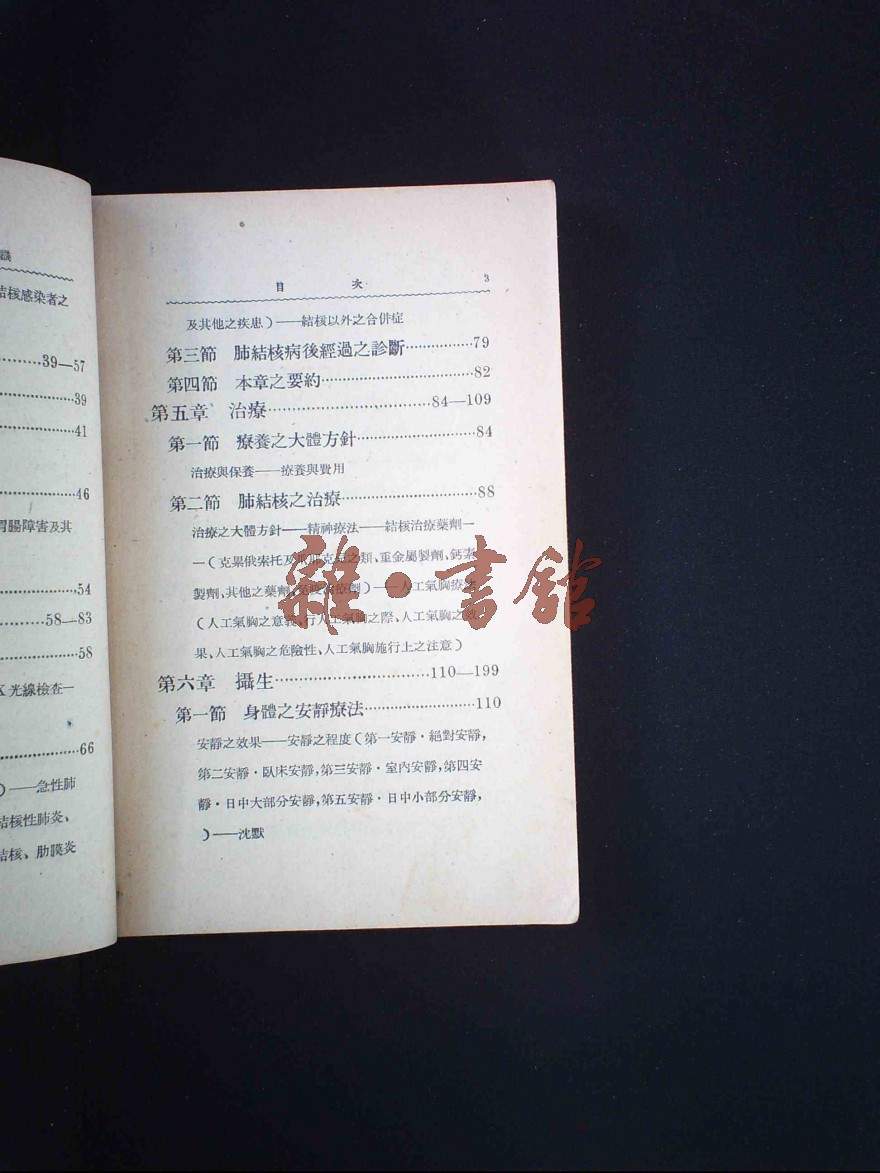 結核感染者之
39—57
39
41
46
胃腸障害及其
54
58—83
58
X光線檢查一
66
)——急性肺
結核性肺炎、
結核、肋膜炎
目 次 3
及其他之疾患)——結核以外之合併症
第三節 肺結核病後經過之診斷················79
第四節 本章之要約····································82
第五章 治療································84—109
第一節 療養之大體方針····························84
治療與保養——療養與費用
第二節 肺結核之治療································88
治療之大體方針——精神療法——結核治療藥劑一
一(克果俄索托及 之類、重金屬製劑、鈣素
製劑、其他之藥劑、 )——人工氣胸療法
(人工氣胸之意義、行人工氣胸之際、人工氣胸之效
果、人工氣胸之危險性、人工氣胸施行上之注意)
第六章 攝生·······························110—199
第一節 身體之安靜療法····························110
安靜之效果——安靜之程度(第一安靜·絕對安靜,
第二安靜·臥床安靜,第三安靜·室內安靜,第四安
靜·日中大部分安靜,第五安靜·日中小部分安靜,
)——沈默
雜·書館